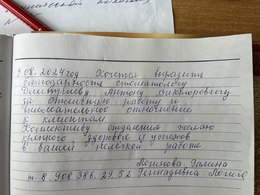 9.08.2024 год Хочется выразить
благодарность стоматологу
Дмитриеву Антону Викторовичу
за отличную работу и
внимательное отношение
к клиентам
Коллективу отделения желаю
крепкого здоровья и успехов
в вашей нелегкой работе
Логинова Галина
т. 8 908 386 29 52 Геннадьевна